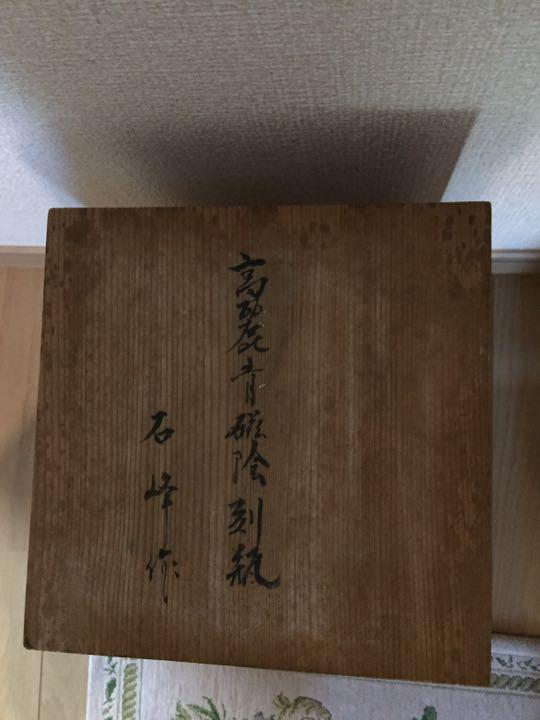 高麗青磁陰刻瓶
石峰作